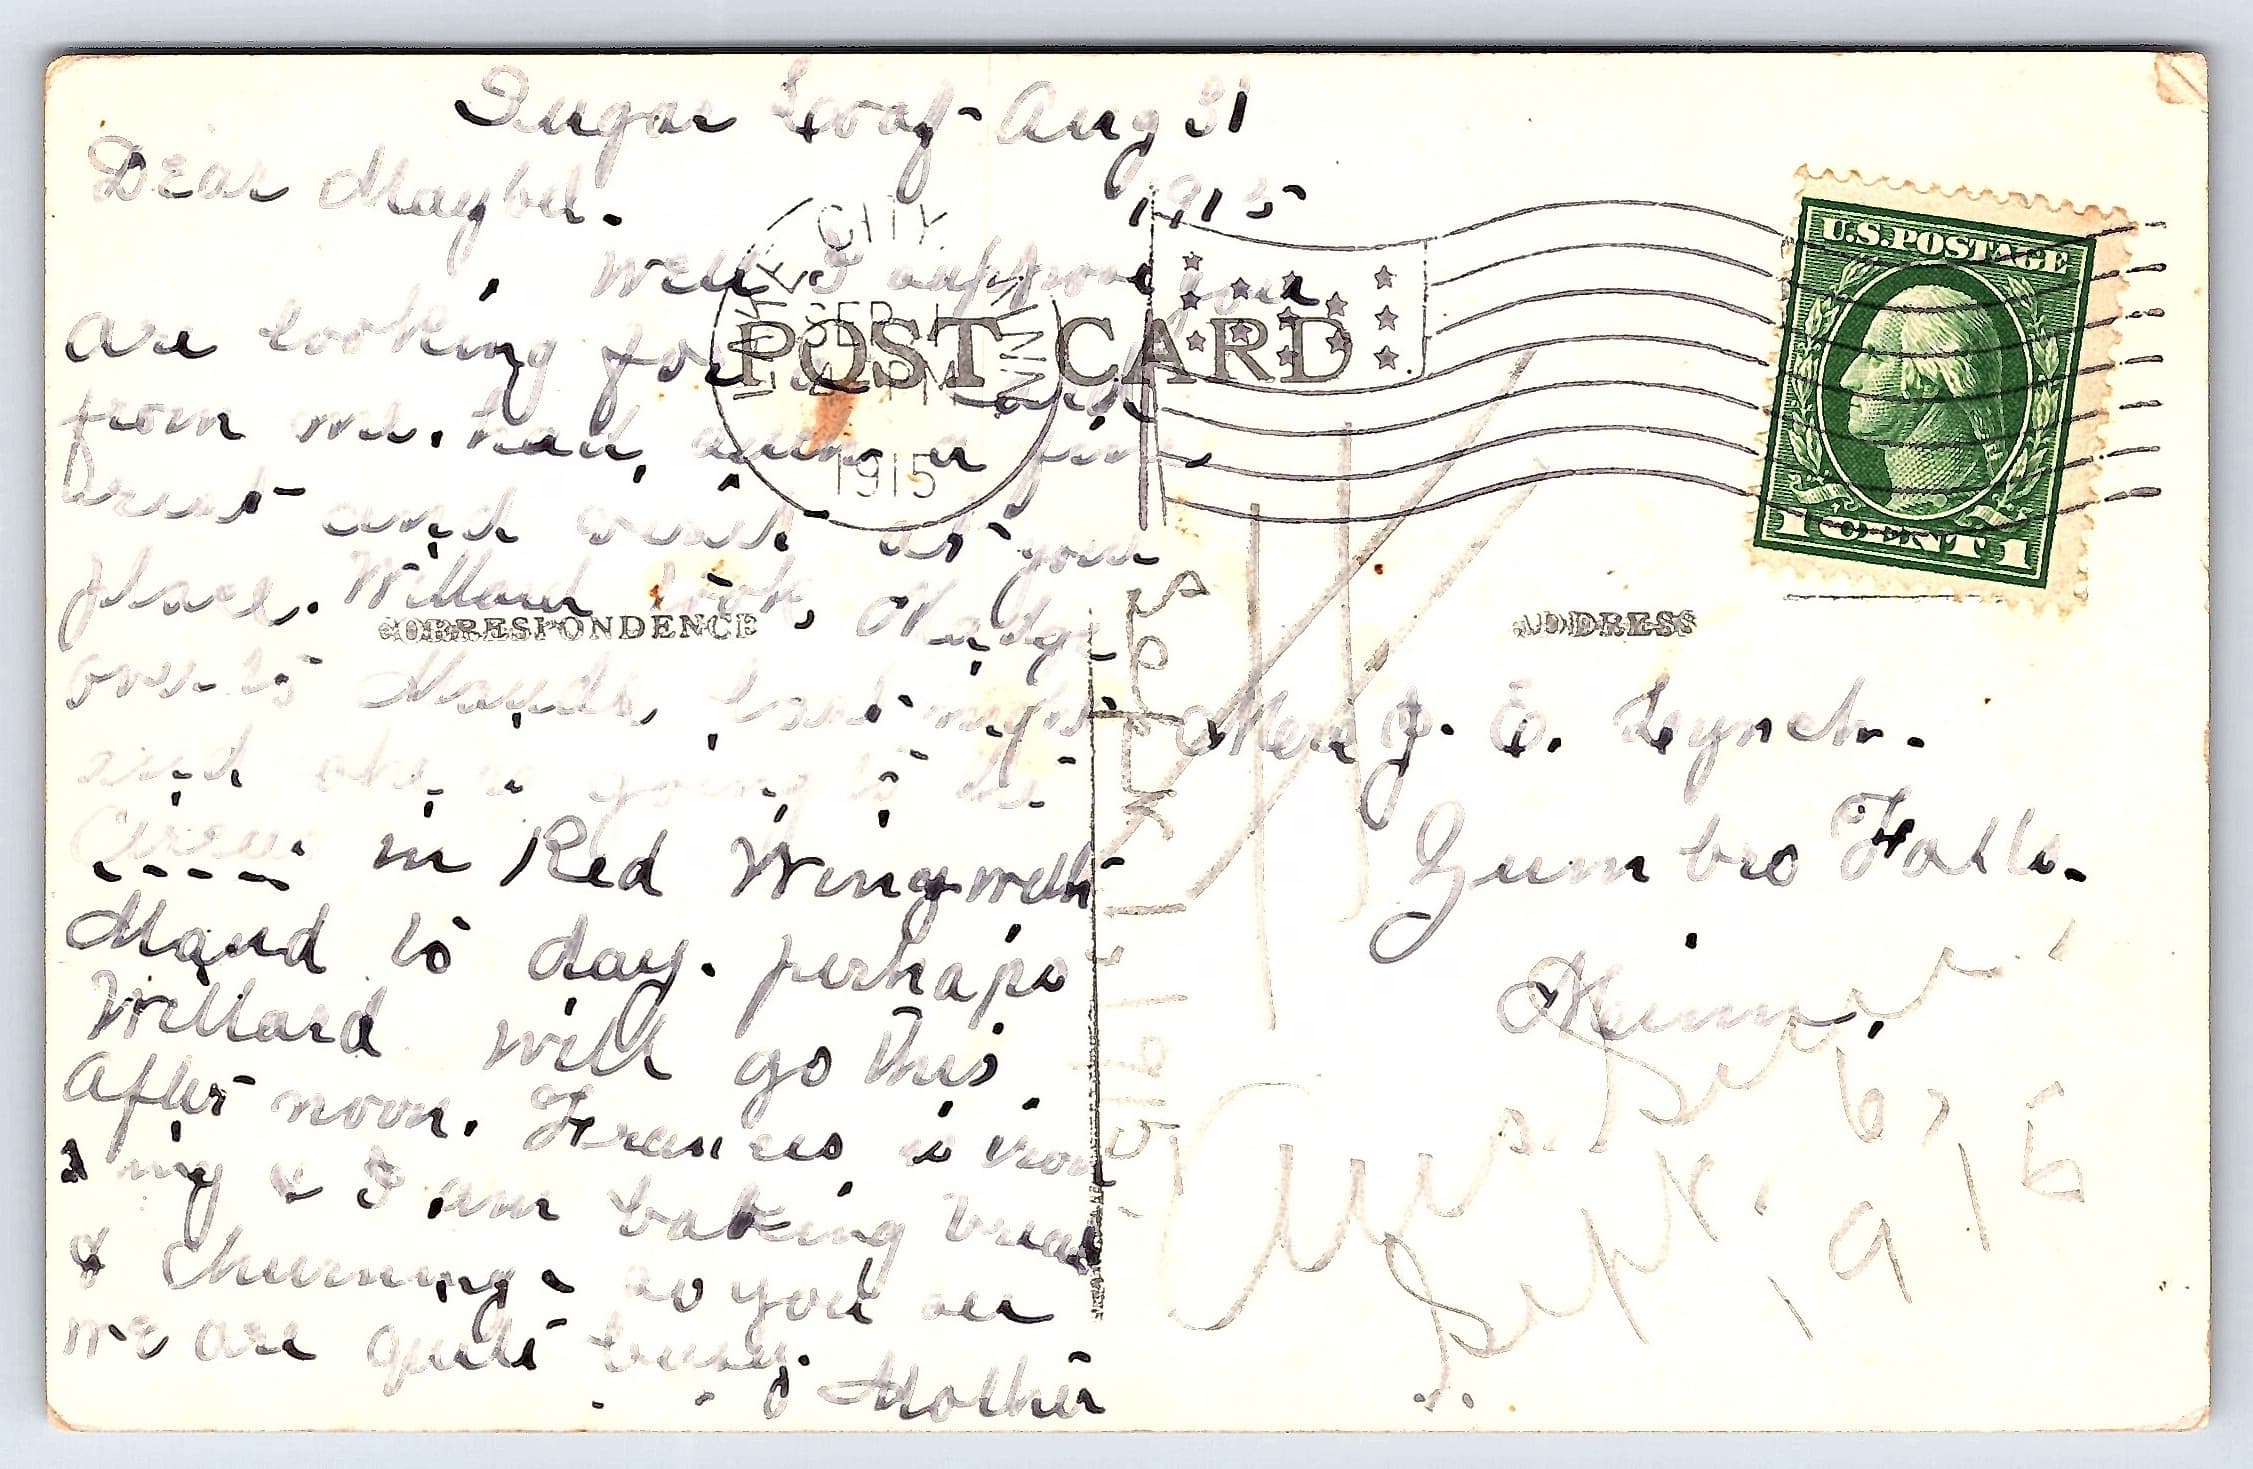 Sugar Loaf - Aug 31
1915
Dear Maybel.
Well I suppose you
are looking for a card
from me. had, a fine
and visit at your
place. Willard took, Madge
over to Mauds, last night
and she is going to the
Circus in Red Wing with
Maud to day. perhaps
Willard will go This
After noon. Frances is iron
ing & I am baking bread
& Churning - so you see
we are quite busy.
Mother
POST CARD
CORRESPONDENCE
ADDRESS
CITY
MINN
SEP 1
1915
U.S. POSTAGE
1 CENT 1
Mrs J. E. Lynch.
Zumbro Falls.
Minn.
Ans. Sept 6, 15
Sept. 1915